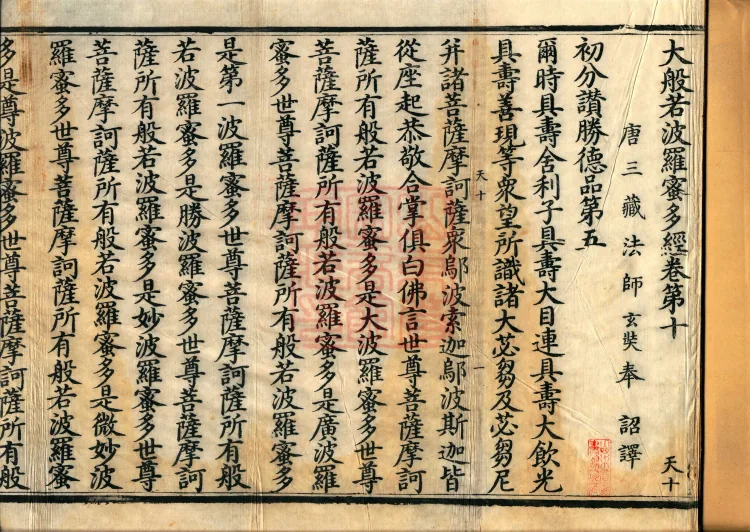 大般若波羅蜜多經卷第十
天十
唐三藏法師玄奘奉 詔譯
初分讚勝德品第五
爾時具壽舍利子具壽大目連具壽大飲光
具壽善現等衆望所識諸大苾芻及苾芻尼
天十 一
并諸菩薩摩訶薩衆鄔波索迦鄔波斯迦皆
從座起恭敬合掌俱白佛言世尊菩薩摩訶
薩所有般若波羅蜜多是大波羅蜜多世尊
菩薩摩訶薩所有般若波羅蜜多是廣波羅
蜜多世尊菩薩摩訶薩所有般若波羅蜜多
是第一波羅蜜多世尊菩薩摩訶薩所有般
若波羅蜜多是勝波羅蜜多世尊菩薩摩訶
薩所有般若波羅蜜多是妙波羅蜜多世尊
菩薩摩訶薩所有般若波羅蜜多是微妙波
羅蜜多世尊菩薩摩訶薩所有般若波羅蜜
多是尊波羅蜜多世尊菩薩摩訶薩所有般